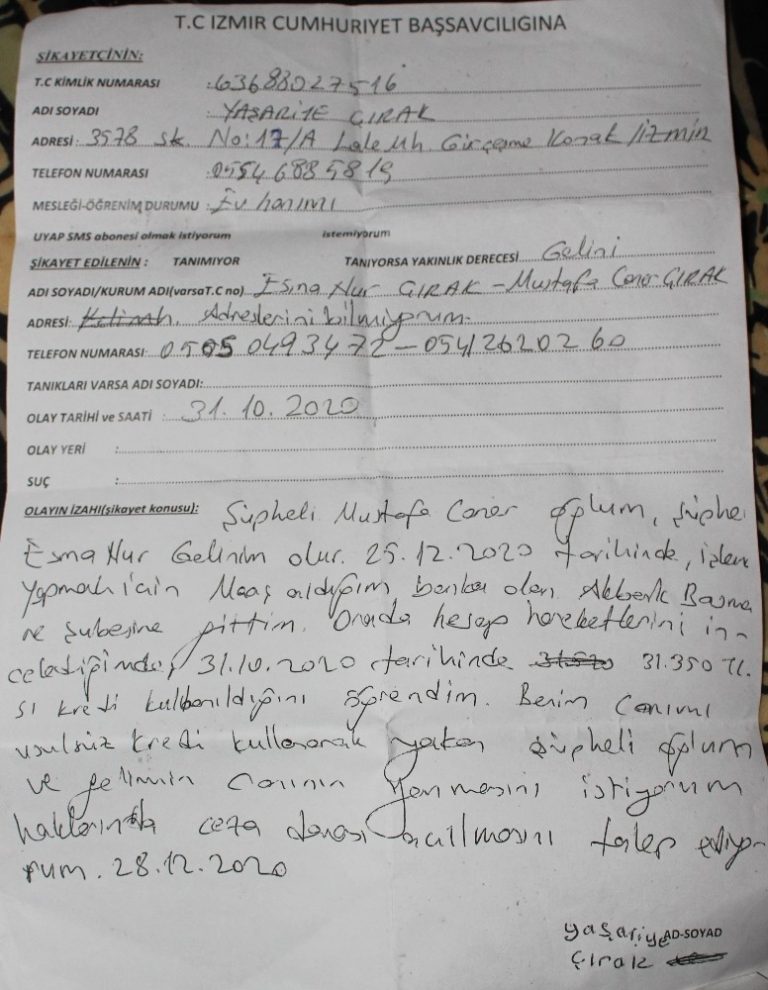 T.C IZMIR CUMHURIYET BAŞSAVCILIGINA
ŞİKAYETÇİNİN:
T.C KİMLİK NUMARASI :63688027516
ADI SOYADI : YAŞARİYE ÇIRAK
ADRESİ: 3578 sk. No:17/A Lale Mh. Gürçeşme Konak/İzmir
TELEFON NUMARASI :0554 688 58 19
MESLEĞİ-ÖĞRENİM DURUMU : Ev hanımı
UYAP SMS abonesi olmak istiyorum istemiyorum
ŞİKAYET EDİLENİN : TANIMIYOR TANIYORSA YAKINLIK DERECESİ Gelini
ADI SOYADI/KURUM ADI(varsaT.C no) Esma Nur ÇIRAK - Mustafa Caner ÇIRAK
ADRESİ: Adreslerini bilmiyorum.
TELEFON NUMARASI: 0505 0493472 - 0541 2620260
TANIKLARI VARSA ADI SOYADI:
OLAY TARİHİ ve SAATİ : 31.10.2020
OLAY YERİ :
SUÇ :
OLAYIN İZAHI(şikayet konusu): Şüpheli Mustafa Caner oğlum, şüphe
Esma Nur Gelinim olur. 25.12.2020 tarihinde, işlem
yapmak için Maaş aldığım banka olan Akbank Basma
ne şubesine gittim. Orada hesap hareketlerini in-
celediğimde, 31.10.2020 tarihinde 31.350 TL.
si kredi kullanıldığını öğrendim. Benim canımı
usulsüz kredi kullanarak yakan şüpheli oğlum
ve gelinimin canının yanmasını istiyorum
haklarında ceza davası açılmasını talep ediyo-
rum. 28.12.2020
yaşariye AD-SOYAD
Çırak